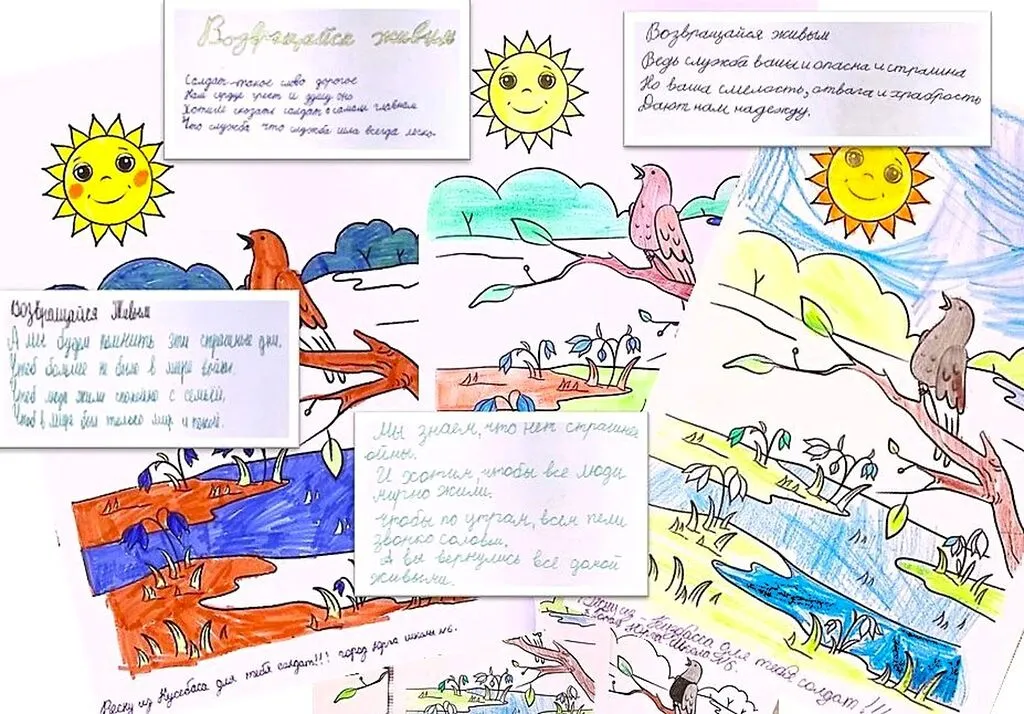 Возвращайся живым
Солдат-такое слово дорогое
Нам сердце греет и душу оно
Хотели сказать солдат о самом главном
Что служба что служба шла всегда легко.
Возвращайся живым
Ведь служба ваша и опасна и страшна
Но ваша смелость, отвага и храбрость
Дают нам надежду.
Возвращайся Живым
А мы будем помнить эти страшные дни,
Чтоб больше не было в мире войны.
Чтоб люди жили спокойно с семьёй,
Чтоб в мире был только мир и покой.
Мы знаем, что нет страшнее
ойны.
И хотим, чтобы все люди
мирно жили.
чтобы по утрам, всем пели
звонко соловьи.
А вы вернулись все домой
живыми.
Весну из Кузебаса для тебя солдат!!! город Юрга школа №6.
Весну из Кузбасса для тебя солдат!!!
г. Юрга школа №6.